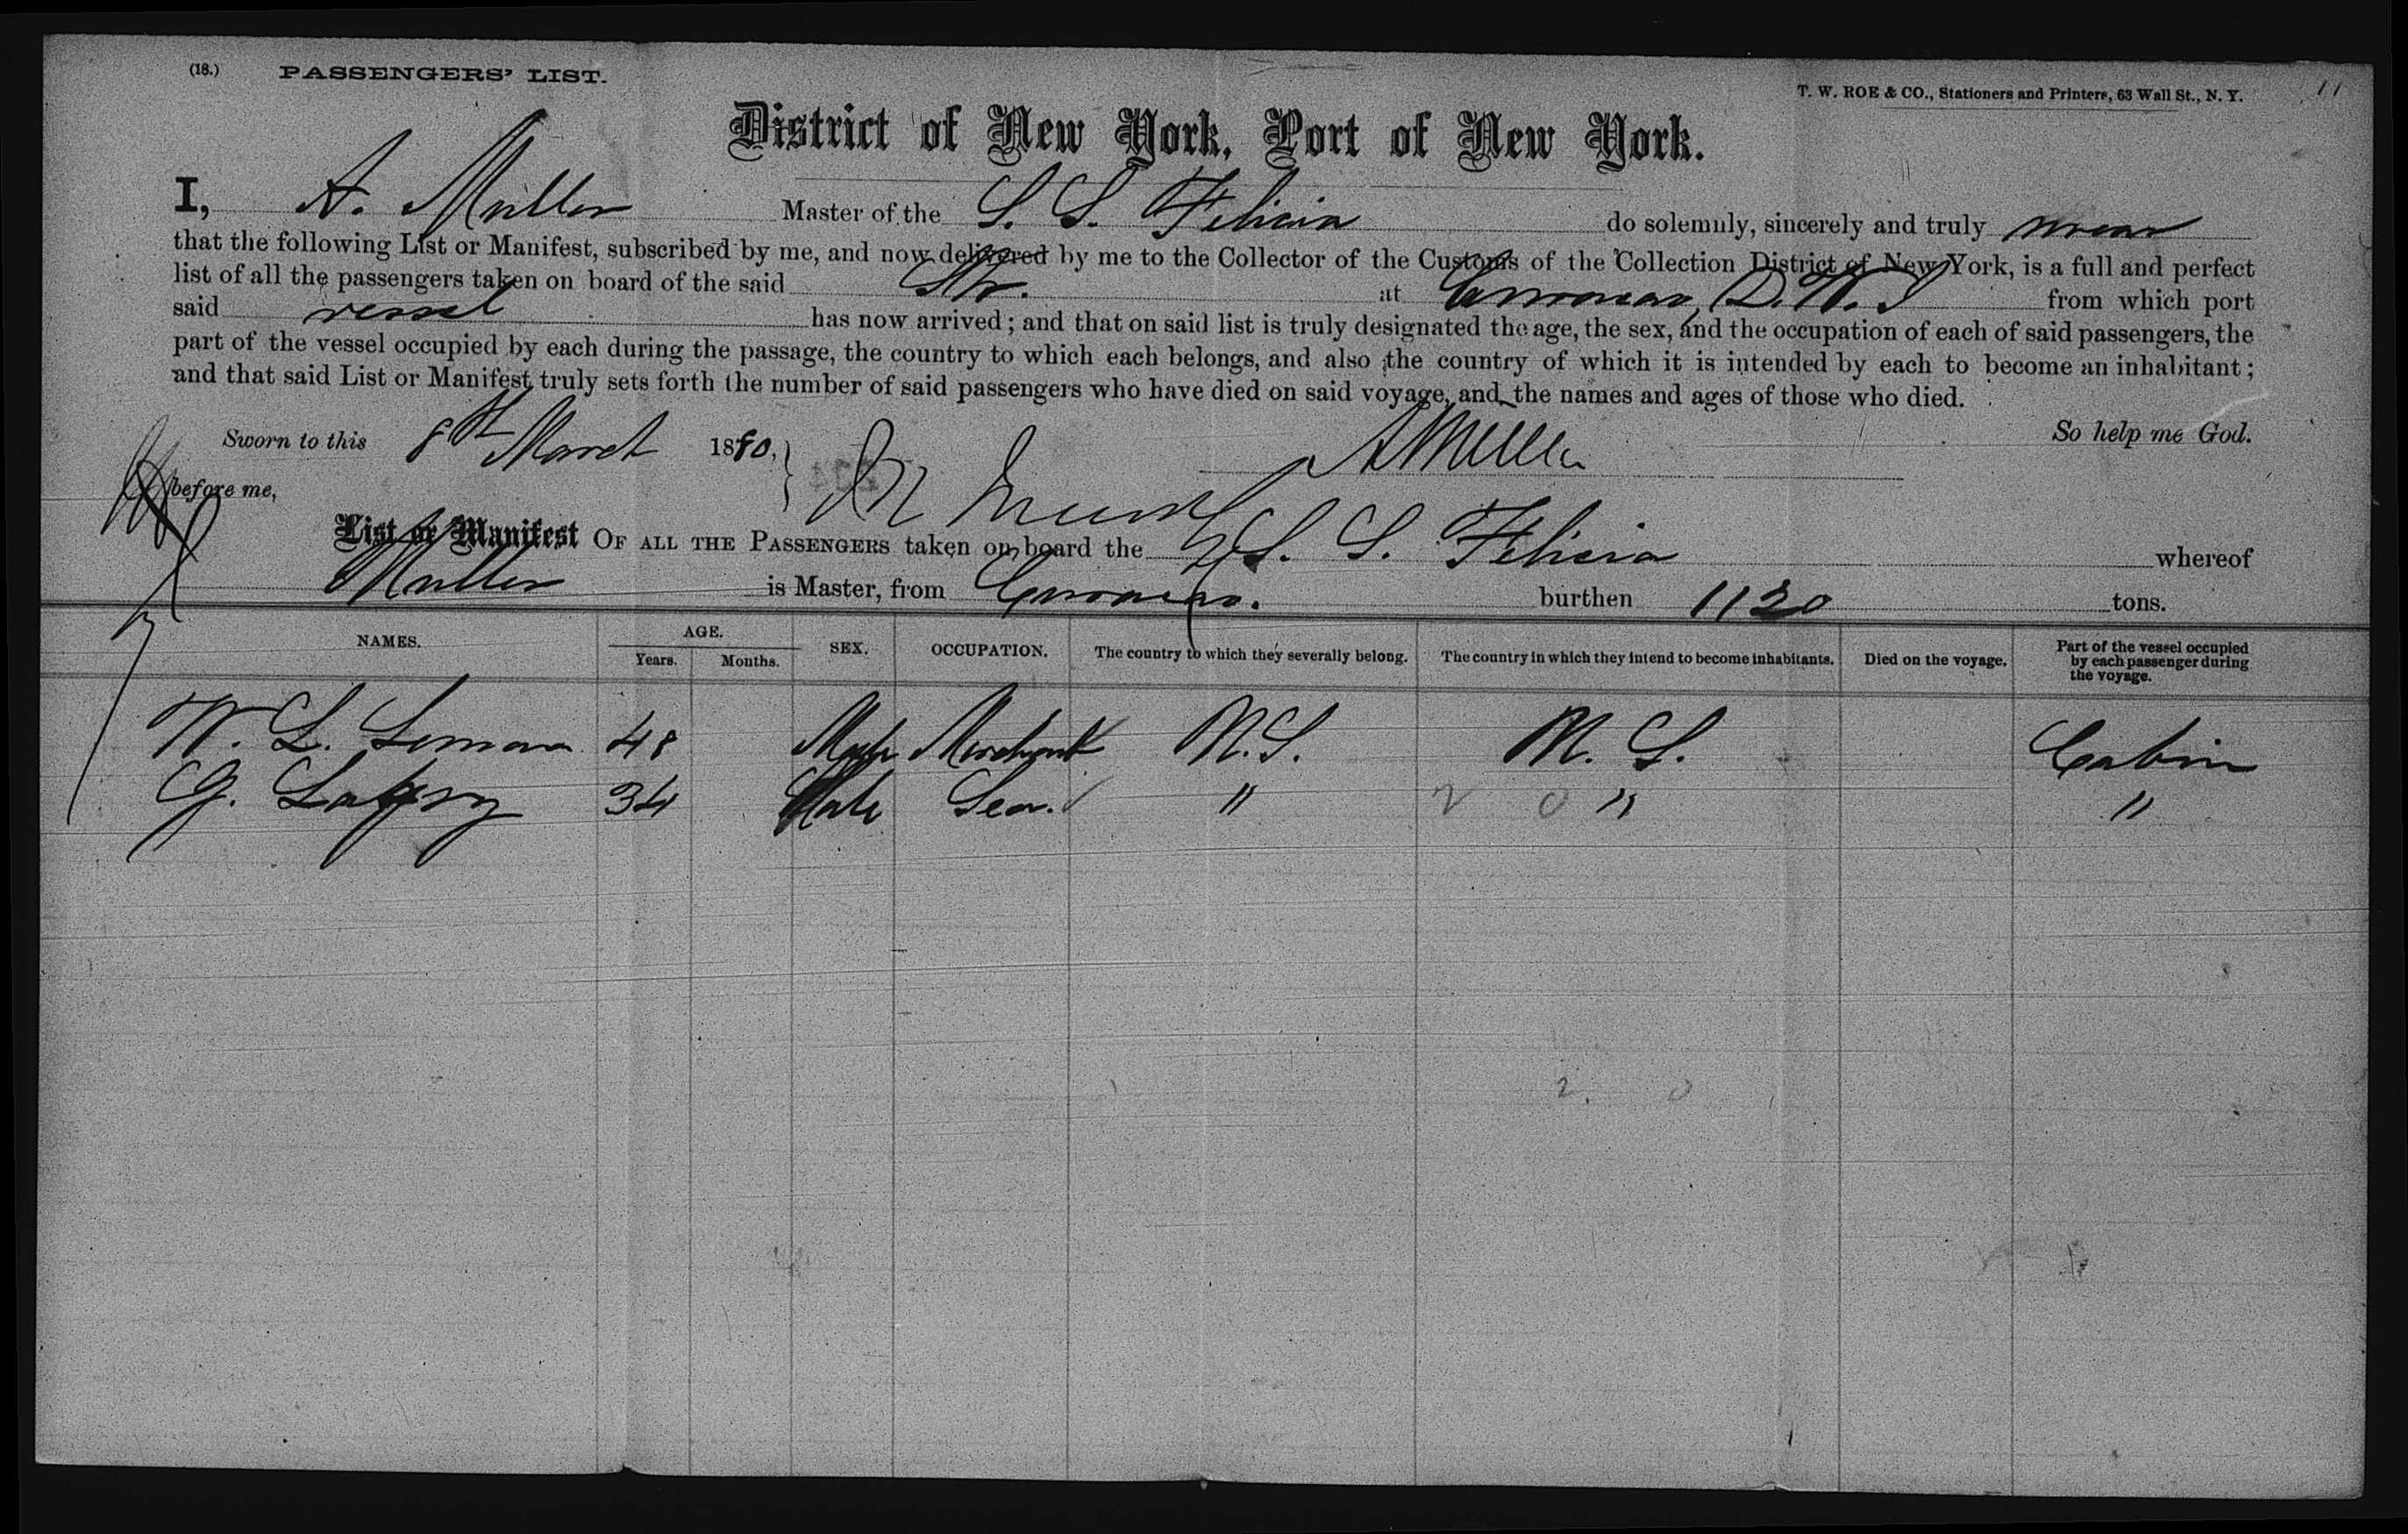 (18.) PASSENGERS' LIST.
T. W. ROE & CO., Stationers and Printers, 63 Wall St., N. Y. 11
District of New York, Port of New York.
I, A. Muller Master of the S. S. Felicia do solemnly, sincerely and truly swear
that the following List or Manifest, subscribed by me, and now delivered by me to the Collector of the Customs of the Collection District of New York, is a full and perfect
list of all the passengers taken on board of the said Str. at Curacao, D. W. I from which port
said vessel has now arrived; and that on said list is truly designated the age, the sex, and the occupation of each of said passengers, the
part of the vessel occupied by each during the passage, the country to which each belongs, and also the country of which it is intended by each to become an inhabitant;
and that said List or Manifest truly sets forth the number of said passengers who have died on said voyage, and the names and ages of those who died.
Sworn to this 8th March 1880, A Muller So help me God.
before me,
List or Manifest OF ALL THE PASSENGERS taken on board the S. S. Felicia whereof
Muller is Master, from Curacao. burthen 1120 tons.
NAMES. AGE. Years. Months. SEX. OCCUPATION. The country to which they severally belong. The country in which they intend to become inhabitants. Died on the voyage. Part of the vessel occupied by each passenger during the voyage.
W. L. 48 Male Merchant U.S. U. S. Cabin
G. 34 Male " 2 0 " "
2. 0